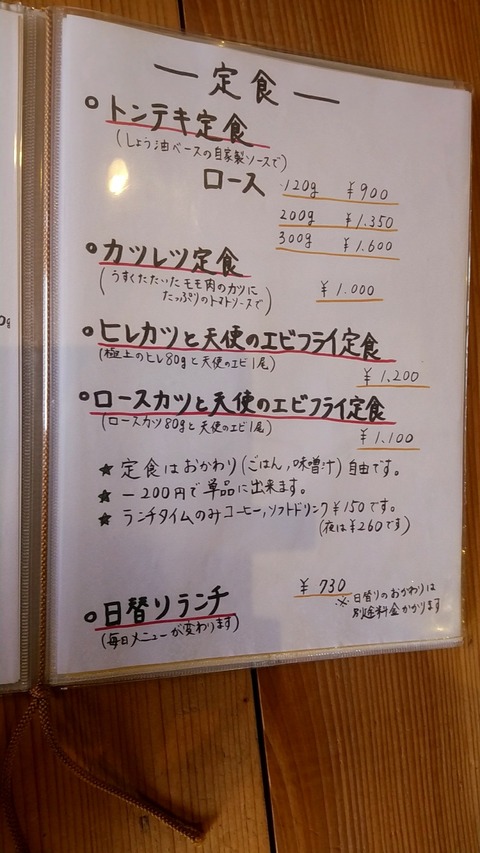 — 定食 —
○ トンテキ定食
(しょう油ベースの自家製ソースで)
ロース 120g ¥900
200g ¥1.350
300g ¥1.600
○ カツレツ定食
(うすくたたいたモモ肉のカツに
たっぷりのトマトソースで)
¥1.000
○ ヒレカツと天使のエビフライ定食
(極上のヒレ80gと天使のエビ1尾)
¥1.200
○ ロースカツと天使のエビフライ定食
(ロースカツ80gと天使のエビ1尾)
¥1.100
★ 定食はおかわり(ごはん,味噌汁)自由です。
★ −200円で単品に出来ます。
★ ランチタイムのみコーヒー,ソフトドリンク¥150です。
(夜は¥260です)
○ 日替りランチ ¥730
(毎日メニューが変わります)
※日替りのおかわりは
別途料金かかります